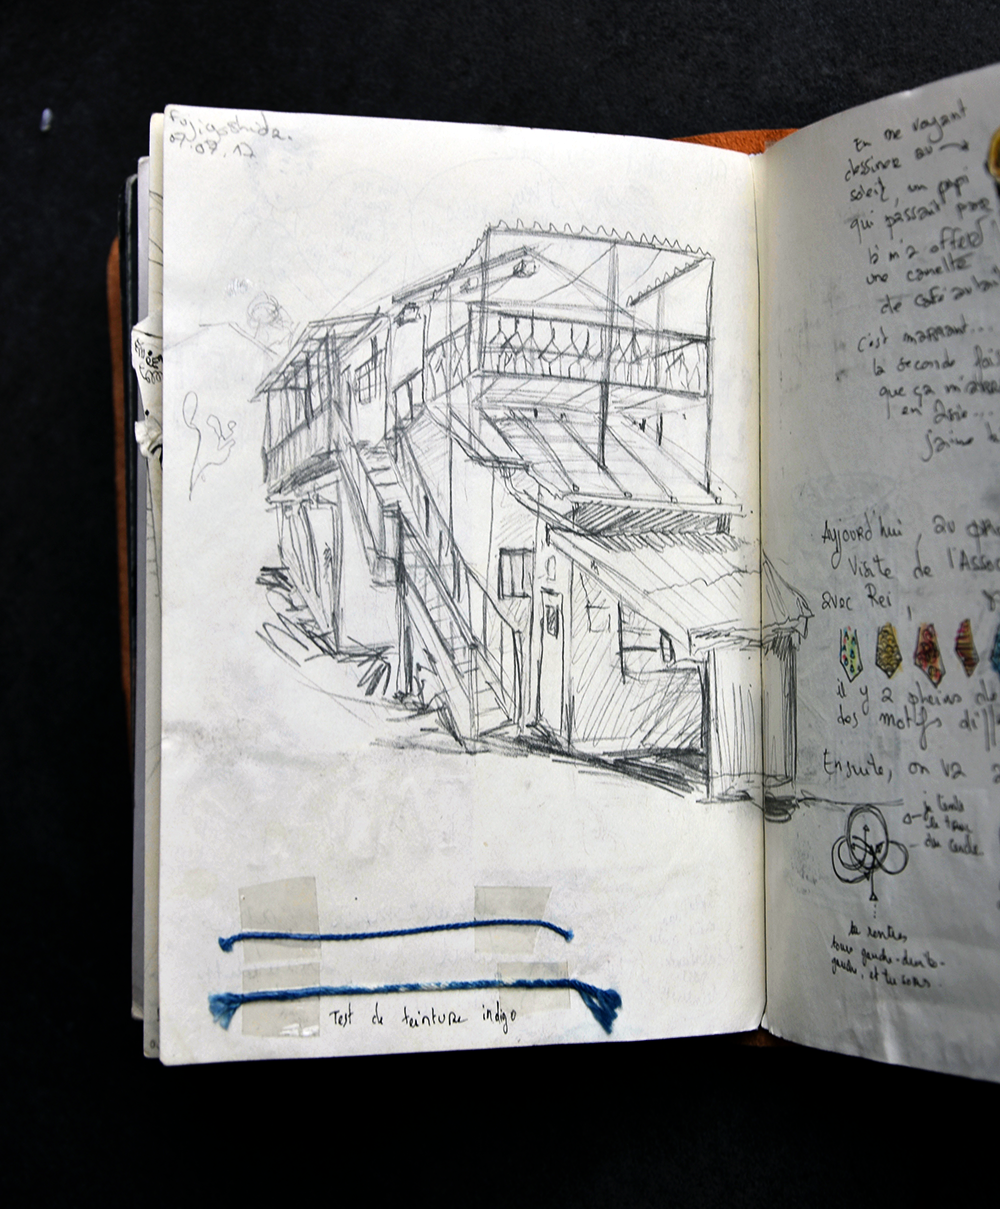 Fujiyoshida.
07.07.17
Test de teinture indigo
En me voyant
dessiner au
soleil, un papi
qui passait par
là m'a offert
une canette
de café au lait
c'est marrant...
la seconde fois
que ça m'
en Asie...
J'aime
Aujourd'hui, au
Visite de l'Assoc
avec Rei,
il y a pleins de
des motifs
Ensuite, on va
je tends
du cercle
tu rentres
gauche-droite-
gauche, et tu